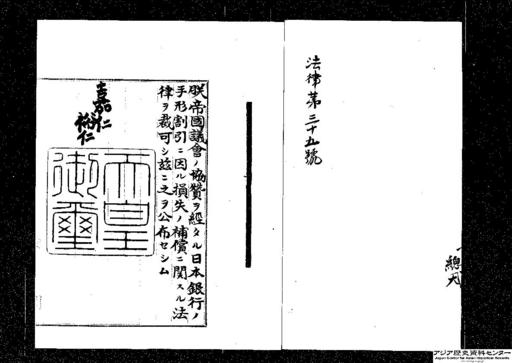 法律第三十五號
朕帝國議會ノ協贊ヲ經タル日本銀行ノ
手形割引ニ因ル損失ノ補償ニ關スル法
律ヲ裁可シ玆ニ之ヲ公布セシム
嘉仁
裕仁
天皇
御璽
アジア歴史資料センター
Japan Center for Asian Historical Records